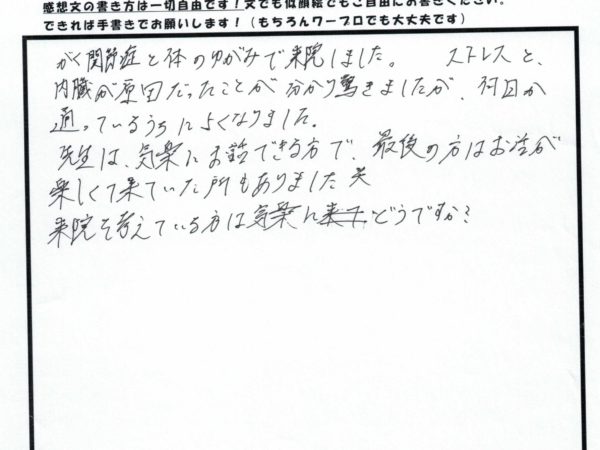 感想文の書き方は一切自由です!文でも似顔絵でもご自由にお書きください。
できれば手書きでお願いします!(もちろんワープロでも大丈夫です)
がく関節症と体のゆがみで来院しました。 ストレスと、
内臓が原因だったことが分かり驚きましたが、何回か
通っているうちによくなりました。
先生は、気楽にお話できる方で、最後の方はお話が
楽しくて来ていた所もありました 笑
来院を考えている方は気楽に どうですか?